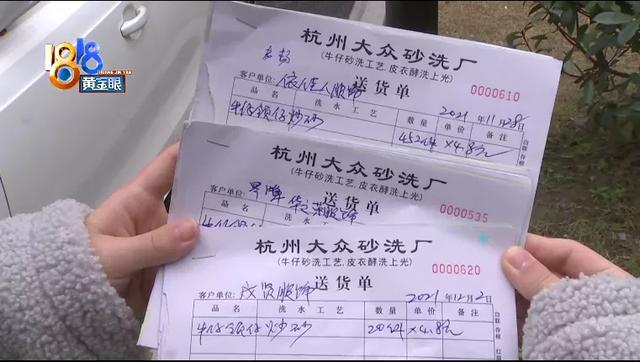 1818
黄金眼
杭州大众砂洗厂
(牛仔砂洗工艺,皮衣酵洗上光)
送货单
0000610
客户单位: 依佳人服饰
2021年11月28日
品名 洗水工艺 数量 单价 备注
牛仔领仔炒砂 452件 ×4.8元
杭州大众砂洗厂
(牛仔砂洗工艺,皮衣酵洗上光)
送货单
0000535
客户单位:
杭州大众砂洗厂
(牛仔砂洗工艺,皮衣酵洗上光)
送货单
0000620
客户单位: 成贤服饰
2021年12月2日
品名 洗水工艺 数量 单价 备注
牛仔领仔炒砂 204件 ×4.8元